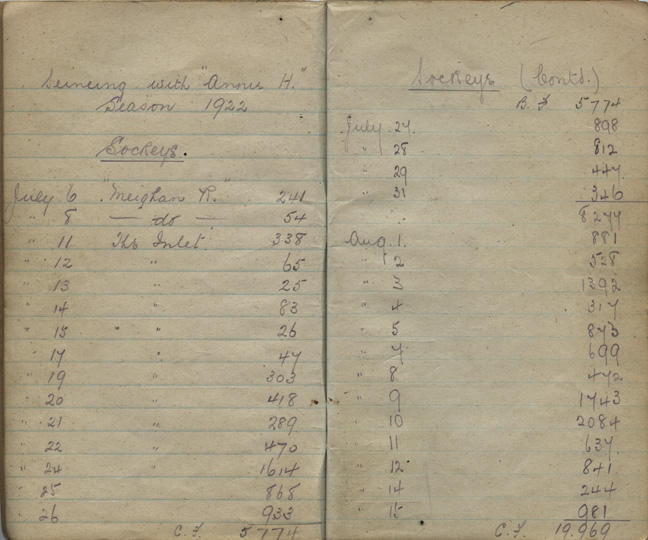 Seineing with "Annie H."
Season 1922
Sockeys.
July 6 "Meighan R." 241
" 8 — do — 54
" 11 Inlet. 338
" 12 " 65
" 13 " 25
" 14 " 83
" 15 " " 26
" 17 " 47
" 19 " 303
" 20 " 418
" 21 " 289
" 22 " 470
" 24 " 1614
" 25 868
" 26 933
C.F. 5774
Sockeys (Contd.)
B.F. 5774
July 27. 898
" 28 812
" 29 447
" 31 346
8277
Aug. 1. 881
" 2 528
" 3 1392
" 4 317
" 5 873
" 7 699
" 8 472
" 9 1743
" 10 2084
" 11 637
" 12 841
" 14 244
" 15 981
C.F. 19,969